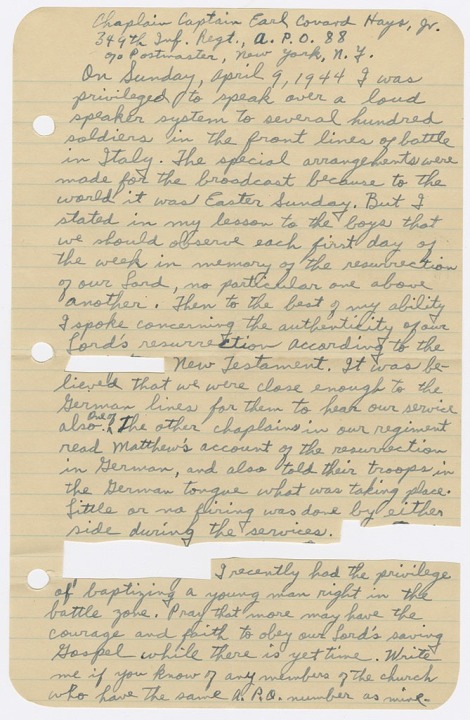 Chaplain Captain Earl Covard Hays, Jr.
349th Inf. Regt., A. P. O. 88
c/o Postmaster, New York, N. Y.
On Sunday, April 9, 1944 I was
privileged to speak over a loud
speaker system to several hundred
soldiers in the front lines of battle
in Italy. The special arrangements were
made for the broadcast because to the
world it was Easter Sunday. But I
stated in my lesson to the boys that
we should observe each first day of
the week in memory of the resurrection
of our Lord, no particular one above
another. Then to the best of my ability
I spoke concerning the authenticity of our
Lord's resurrection according to the
New Testament. It was be-
lieved that we were close enough to the
German lines for them to hear our service
also. One of the other chaplains in our regiment
read Matthew's account of the resurrection
in German, and also told their troops in
the German tongue what was taking place.
Little or no firing was done by either
side during the services.
I recently had the privilege
of baptizing a young man right in the
battle zone. Pray that more may have the
courage and faith to obey our Lord's saving
Gospel while there is yet time. Write
me if you know of any members of the church
who have the same A.P.O. number as mine.